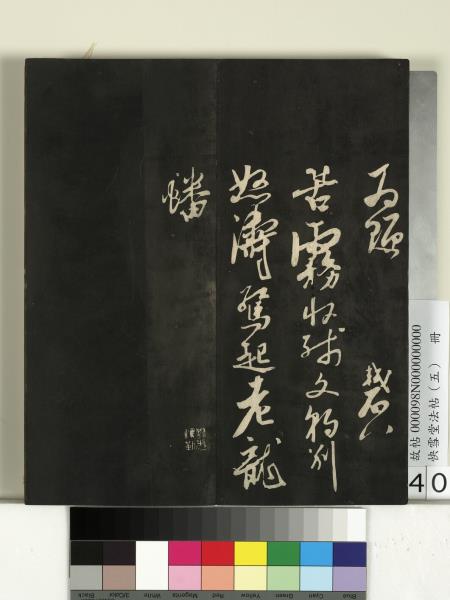 苦霧收殘文豹別
怒濤驚起老龍
蟠
故帖 000098N000000000
快雪堂法帖（五） 冊
40
Blue Cyan Green Yellow Red Magenta White 3/Color Black